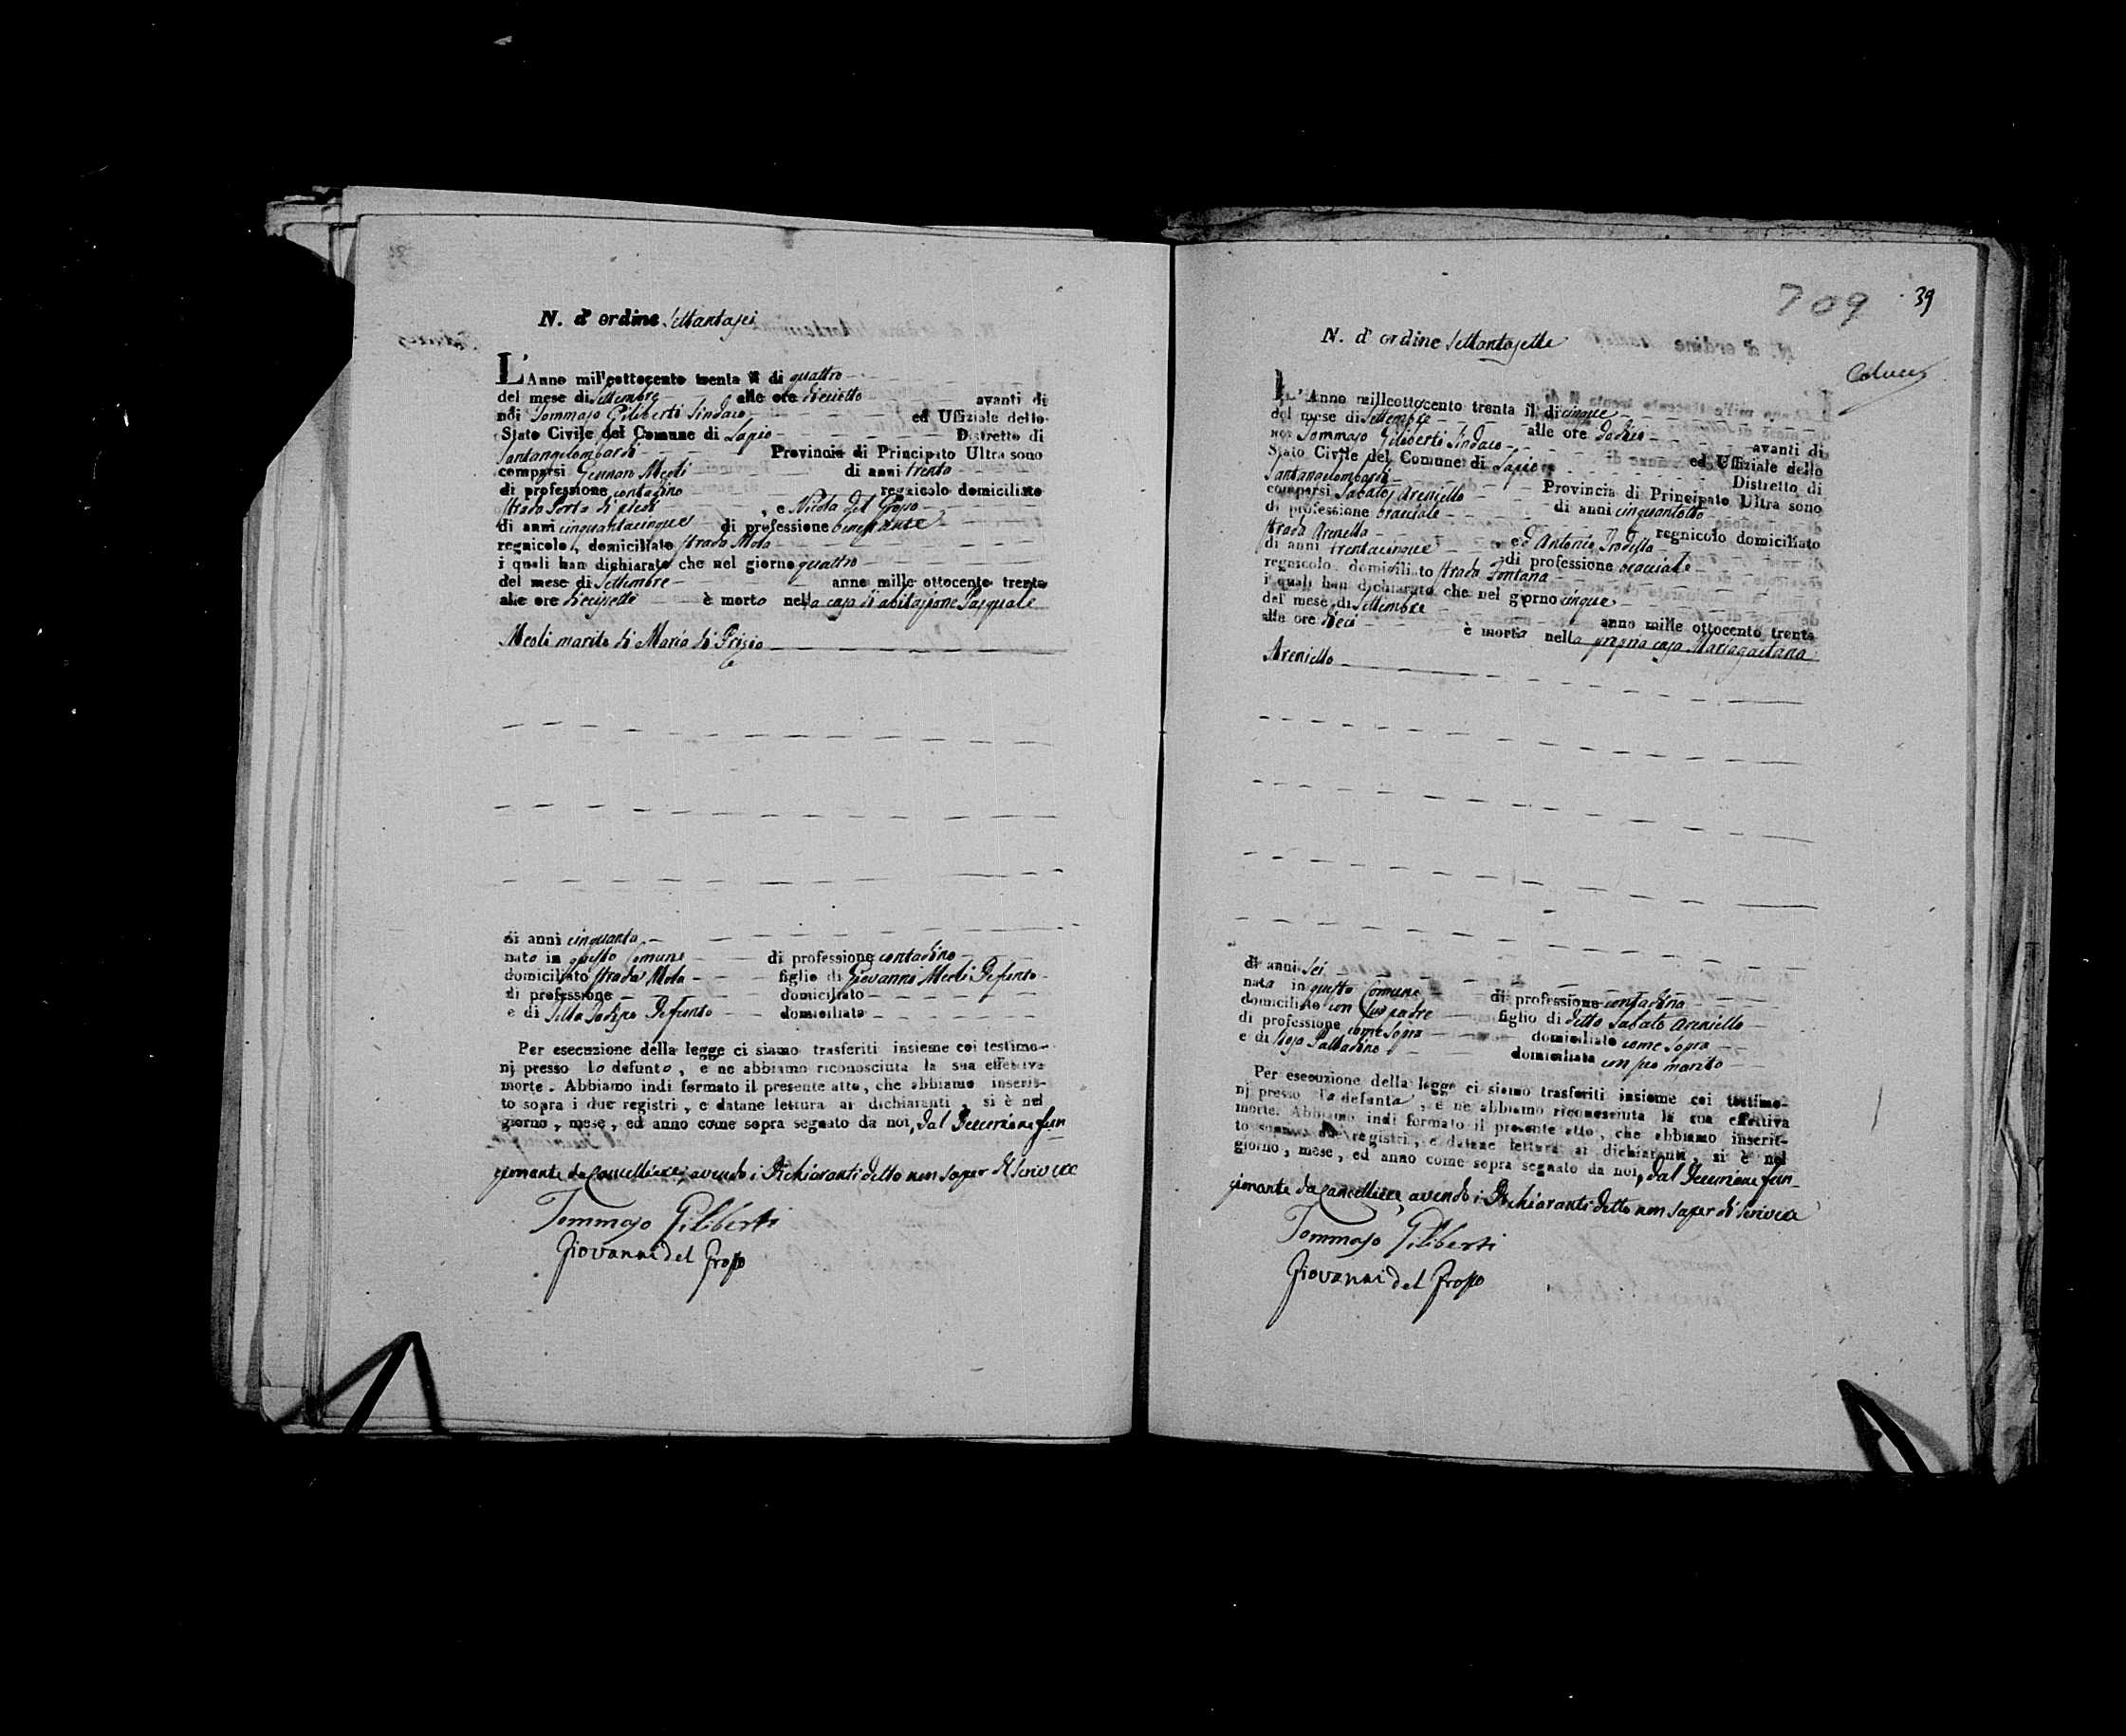 N. d' ordine Settantasei
L'Anno mill'ottocento trenta il di quattro
del mese di Settembre alle ore dieciotto avanti di
noi Tommaso Giliberti Sindaco ed Uffiziale dello
Stato Civile del Comune di Lapio Distretto di
Santangelombardi Provincia di Principato Ultra sono
comparsi Gennaro Meoli di anni trenta
di professione contadino regnicolo domiciliato
strada Porta di , e Nicola del Grosso
di anni cinquantacinque di professione benestante
regnicolo, domiciliato strada Mola
i quali han dichiarato che nel giorno quattro
del mese di Settembre anno mille ottocento trenta
alle ore diecisette è morto nella casa di abitazione Pasquale
Meoli marito di Maria di Prizio
di anni cinquanta
nato in questo Comune di professione contadino
domiciliato strada Mola figlio di Giovanni Meoli Defunto
di professione domiciliato
e di Defunto domiciliata
Per esecuzione della legge ci siamo trasferiti insieme coi testimo-
nj presso lo defunto, e ne abbiamo riconosciuta la sua effettiva
morte. Abbiamo indi formato il presente atto, che abbiamo inserit-
to sopra i due registri, e datane lettura ai dichiaranti, si è nel
giorno, mese, ed anno come sopra segnato da noi, dal Decurione fun
zionante da Cancelliere, avendo i Dichiaranti detto non saper di scrivere
Tommaso Giliberti
Giovanni del Grosso
709 39
N. d' ordine Settantasette
Colucci
L'Anno milleottocento trenta il di cinque
del mese di Settembre alle ore dodici avanti di
noi Tommaso Giliberti Sindaco ed Uffiziale dello
Stato Civile del Comune di Lapio Distretto di
Santangelombardi Provincia di Principato Ultra sono
comparsi Sabato Areniello di anni cinquantotto
di professione bracciale regnicolo domiciliato
strada Arenella e d Antonio Trodella
di anni trentacinque di professione bracciale
regnicolo domiciliato strada Fontana
i quali han dichiarato che nel giorno cinque
del mese di Settembre anno mille ottocento trenta
alle ore dieci è morta nella propria casa Mariagaetana
Areniello
di anni sei
nata in questo Comune di professione contadina
domiciliata con suo padre figlio di detto Sabato Areniello
di professione come sopra domiciliato come sopra
e di Rosa Palladino domiciliata con suo marito
Per esecuzione della legge ci siamo trasferiti insieme coi testimo-
nj presso la defunta, e ne abbiamo riconosciuta la sua effettiva
morte. Abbiamo indi formato il presente atto, che abbiamo inserit-
to sopra i due registri, e datane lettura ai dichiaranti, si è nel
giorno, mese, ed anno come sopra segnato da noi, dal Decurione fun-
zionante da Cancelliere, avendo i Dichiaranti detto non saper di scrivere
Tommaso Giliberti
Giovanni del Grosso